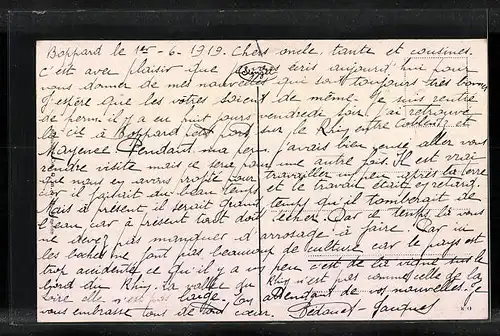 Boppard le 1er - 6. 1919. Chers oncle, tante et cousines.
C'est avec plaisir que je vous écris aujourd'hui pour
vous donner de mes nouvelles qui sont toujours très bonnes
J'espère que les votres soient de même. Je suis rentré
de perm. il y a eu huit jours vendredi soir. J'ai retrouvé
la Cie à Boppard sur le Rhin entre Coblentz et
Mayence Pendant ma perm. j'avais bien pensé aller vous
rendre visite mais ce sera pour une autre fois. Il est vrai
que nous en avons profité pour travailler un peu après la terre
car il faisait du beau temps et le travail était en retard.
Mais à présent, il serait grand temps qu'il tomberait de
l'eau car à présent tout doit sécher. Par ce temps là vous
ne devez pas manquer d'arrosage à faire. Par ici
les boches ne font pas beaucoup de culture car le pays est
trop accidenté ce qu'il y a vos peu c'est de la vigne sur le
bord du Rhin. La vallée du Rhin n'est pas comme celle de la
Loire elle n'est pas large. En attendant de vos nouvelles. Je
vous embrasse tous de tout cœur. Jacques